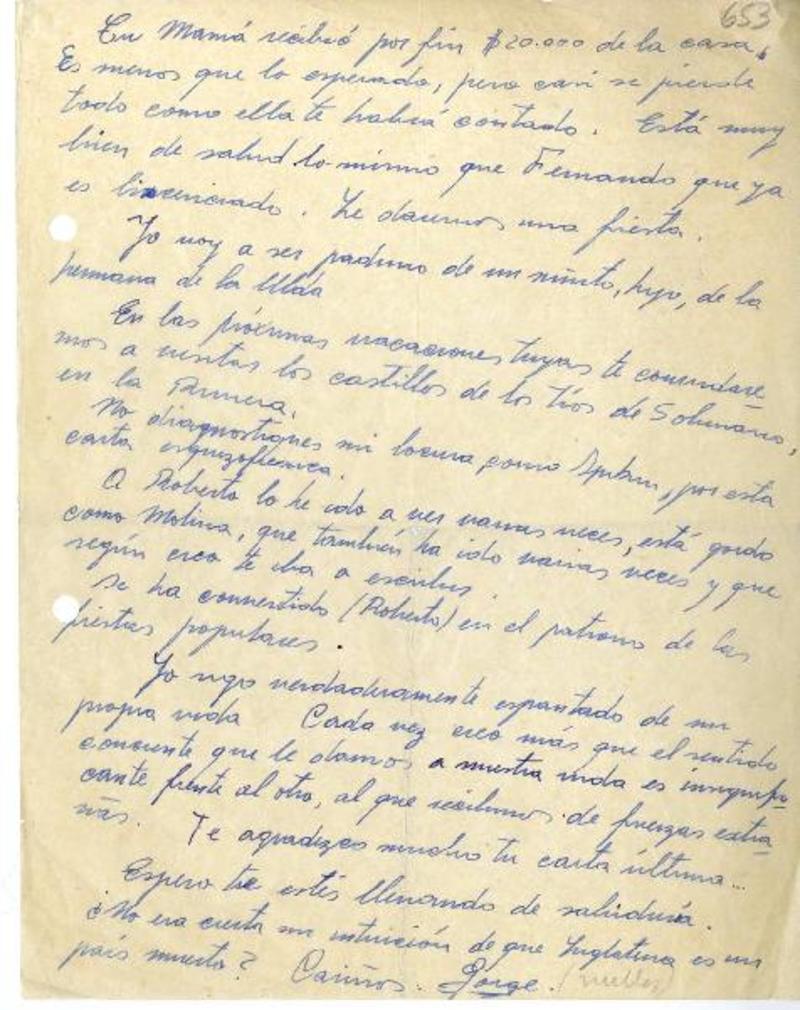 653
Tu Mamá recibió por fin $20.000 de la casa,
Es menos que lo esperado, pero casi se pierde
todo como ella te habrá contado. Está muy
bien de salud lo mismo que Fernando que ya
es licenciado. Le daremos una fiesta.
Yo voy a ser padrino de un niñito, hijo, de la
hermana de la
En las próximas vacaciones tuyas te convidare
mos a visitar los castillos de los tíos de Solimano,
en la
No diagnostiques mi locura como por esta
carta esquizofrénica.
A Roberto lo he ido a ver varias veces, está gordo
como Molina, que también ha ido varias veces y que
según creo te iba a escribir.
Se ha convertido (Roberto) en el patrono de las
fiestas populares.
Yo sigo verdaderamente espantado de mi
propia vida Cada vez creo más que el sentido
conciente que le damos a nuestra vida es insignifi
cante frente al otro, al que recibimos de fuerzas extra
ñas. Te agradezco mucho tu carta última...
Espero te estés llenando de sabiduría.
¿No era cierta mi intuición de que Inglaterra es un
país muerto? Cariños. Jorge.